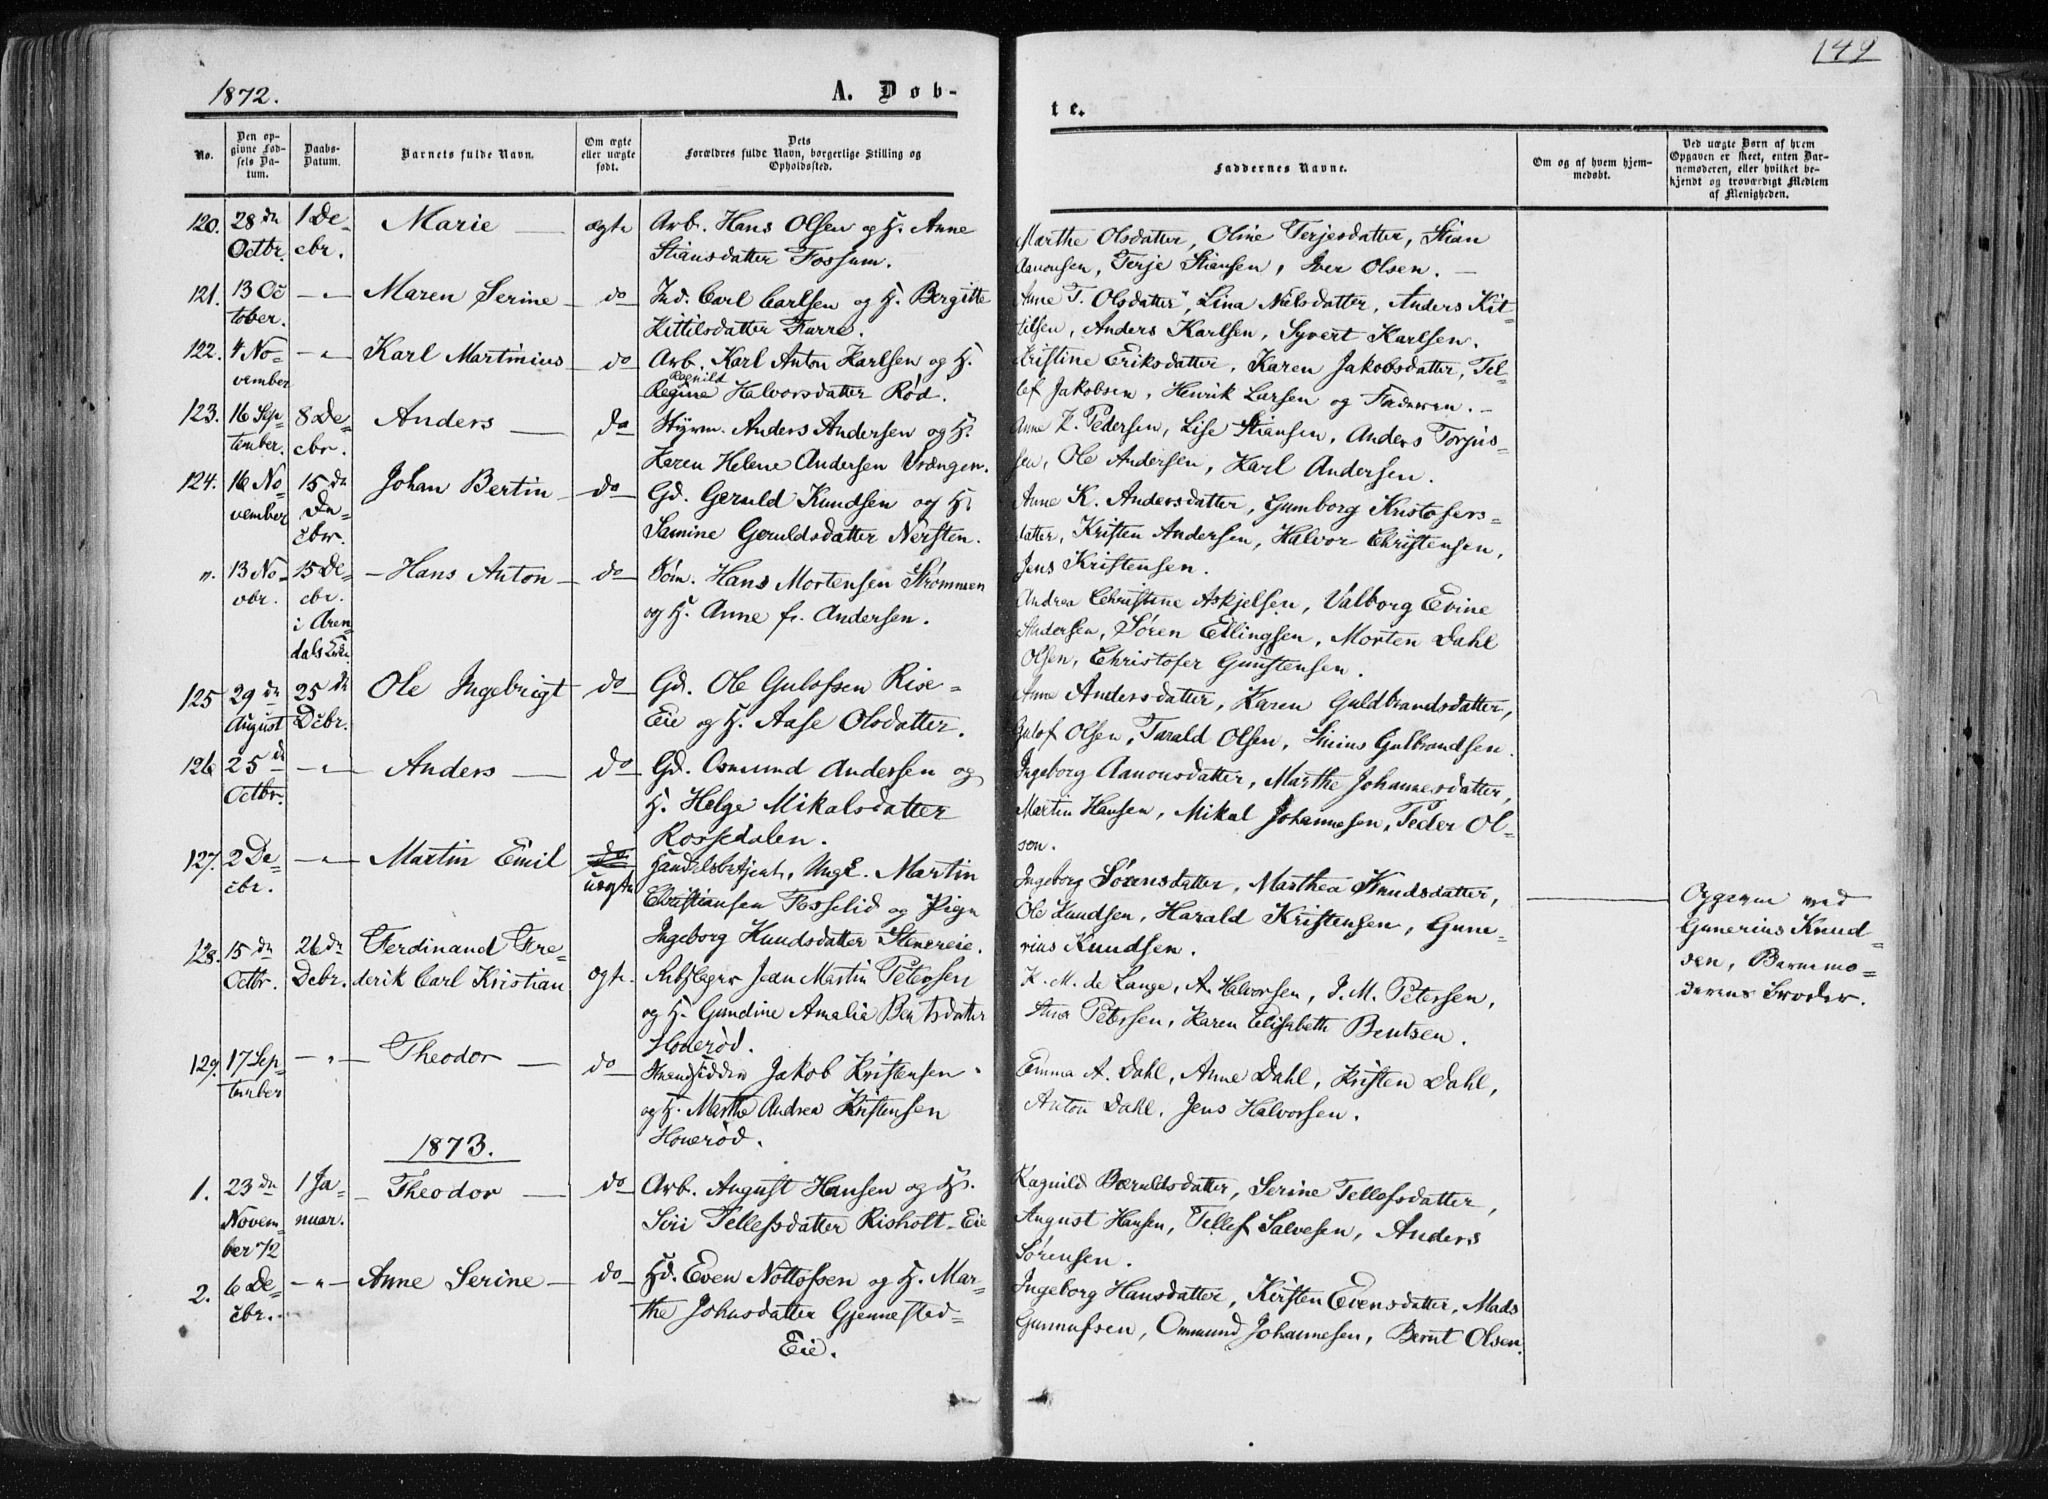 149
1872.
A. Døb-
te.
No.
Den op-
givne Fød-
sels Da-
tum.
Daabs-
Datum.
Barnets fulde Navn.
Om ægte
eller uægte
født.
Dets
Forældres fulde Navn, borgerlige Stilling og
Opholdssted.
Faddernes Navne.
Om og af hvem hjem-
medøbt.
Ved uægte Børn af hvem
Opgaven er skeet, enten Bar-
nemoderen, eller hvilket be-
kjendt og troværdigt Medlem
af Menigheden.
120. 28de 1 De- Marie — ægte Arb. Hans Olsen og H. Anne
Octbr. cbr. Stiansdatter Fossum.
Marthe Olsdatter, Oline Terjesdatter, Stian
Aanonsen, Terje Stiansen, Iver Olsen. —
121. 13 Oc — " — Maren Serine — do — Ind. Carl Carlsen og H. Bergitte
tober. Kittilsdatter Furre.
Anne T. Olsdatter, Lina Nielsdatter, Anders Kit-
tilsen, Anders Karlsen, Syvert Karlsen.
122. 4 No- — " — Karl Martinius do Arb. Karl Anton Karlsen og H.
Ragnild
vember Regine Halvorsdatter Rød.
Kristine Eriksdatter, Karen Jakobsdatter, Tel-
lef Jakobsen, Henrik Larsen og Faderen. —
123. 16 Sep- 8 De- Anders — do Styrm. Anders Andersen og H.
tember. cbr. Karen Helene Andersen Vrængen.
Anne K. Pedersen, Lise Stiansen, Anders Torjus-
sen, Ole Andersen, Karl Andersen.
124. 16 No- 15de Johan Bertin — do — Gd. Geruld Knudsen og H.
vember De-
cbr. Samine Geruldsdatter Nersten.
Anne K. Andersdatter, Gumborg Kristofers-
datter, Kristen Andersen, Halvor Christensen,
Jens Kristensen.
n. 13 No- 15 De- — Hans Anton — do — Søm. Hans Mortensen Strømmen
vbr. cbr. og H. Anne fr. Andersen.
i Aren-
dals
Andrea Christine Askjelsen, Valborg Evine
Andersen, Søren Ellingsen, Morten Dahl
Olsen, Christofer Gunstensen.
125 29de 25de Ole Ingebrigt do — Gd. Ole Gulofsen Rise-
August Debr. Eie og H. Aase Olsdatter.
Anne Andersdatter, Karen Guldbrandsdatter,
Gulof Olsen, Tarald Olsen, Gulbrandsen.
126 25de — " — Anders — do — Gd. Osmund Andersen og
Octbr. H. Helge Mikalsdatter
Rossedalen.
Ingeborg Aanonsdatter, Marthe Johannesdatter,
Martin Hansen, Mikal Johannesen, Peder Ol-
sen.
127. 2 De- — " — Martin Emil do Handelsbetjent, Ungk. Martin
cbr. uægte Christiansen Fosselid og Pige
Ingeborg Knudsdatter Stenereie.
Ingeborg Sørensdatter, Marthea Knudsdatter,
Ole Knudsen, Harald Kristensen, Gune-
rius Knudsen.
Opgaven ved
Gunerius Knud-
sen, Barnemo-
derens Broder.
128. 15de 26de Ferdinand Fre- ægte Rebslager Jean Martin Petersen
Octbr. Debr. derik Carl Kristian og H. Gundine Amalia Bentsdatter
Honerød.
K. M. de Lange, A. Halvorsen, J. M. Petersen,
Anna Petersen, Karen Elisabeth Bentsen.
129. 17 Sep- — " — Theodor — do — Strandsidder Jakob Kristensen
tember og H. Marthe Andrea Kristensen
Honerød.
Emma A. Dahl, Anne Dahl, Kristen Dahl,
Anton Dahl, Jens Halvorsen.
1873.
1. 23de 1 Ja- — Theodor — do — Arb. August Hansen og H.
Novem- nuar. Siri Tellefsdatter Risholt-Eie
ber 72
Ragnild Bæruldsdatter, Serine Tellefsdatter,
August Hansen, Tellef Salvesen, Anders
Sørensen.
2. 6 De- — " — Anne Serine — do — Hd. Even Nottofsen og H. Mar-
cbr. the Johnsdatter Gjennested-
Eie.
Ingeborg Hansdatter, Kirsten Evensdatter, Mads
Gunnufsen, Ommund Johannesen, Bernt Olsen.